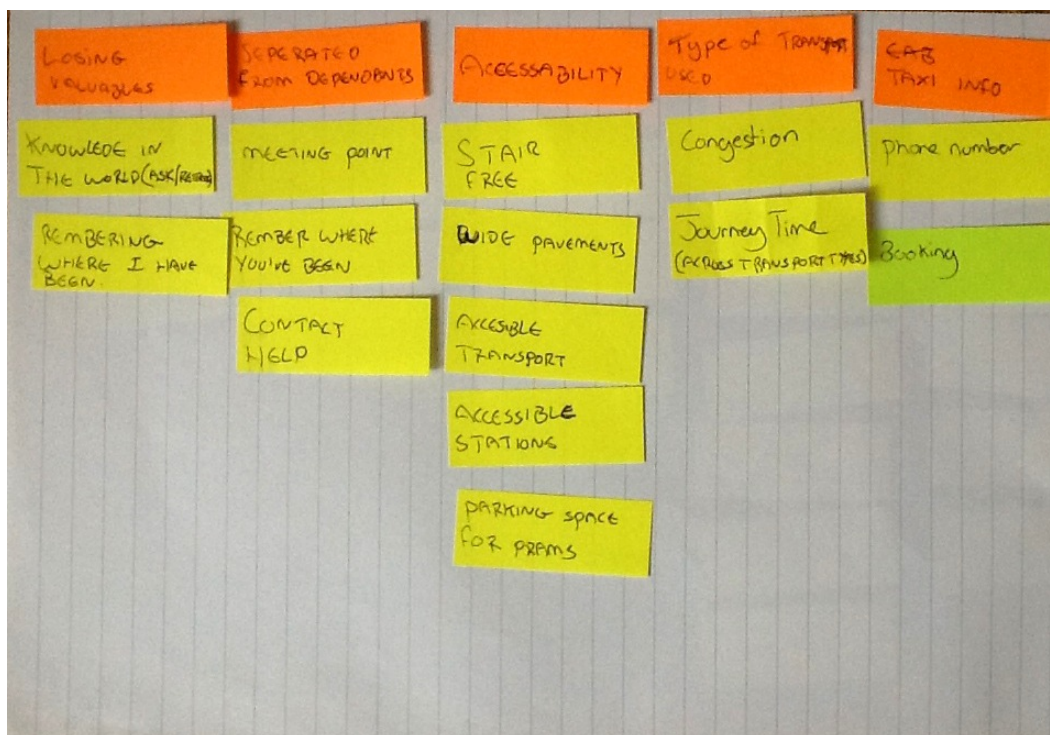 LOSING
VALUABLES
KNOWLEDE IN
THE WORLD (ASK/
REMBERING
WHERE I HAVE
BEEN.
SEPERATED
FROM DEPENDANTS
MEETING POINT
REMBER WHERE
YOU'VE BEEN
CONTACT
HELP
ACCESSABILITY
STAIR
FREE
WIDE PAVEMENTS
ACCESIBLE
TRANSPORT
ACCESSIBLE
STATIONS
PARKING SPACE
FOR PRAMS
Type of TRANSPORT
USED
Congestion
Journey Time
(ACROSS TRANSPORT TYPES)
CAB
TAXI INFO
phone number
Booking